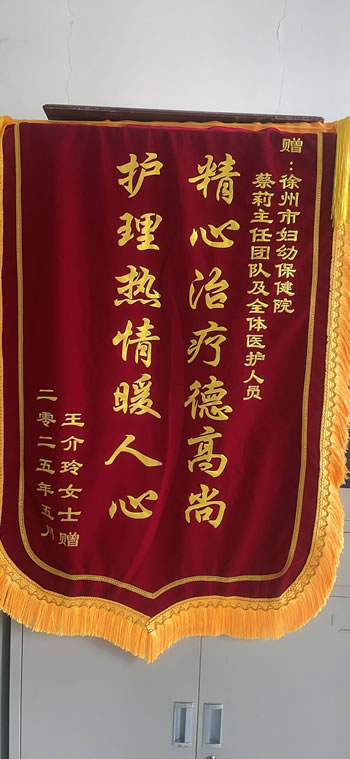 赠：徐州市妇幼保健院
蔡莉主任团队及全体医护人员
精心治疗德高尚
护理热情暖人心
王介玲女士赠
二零二五年五月